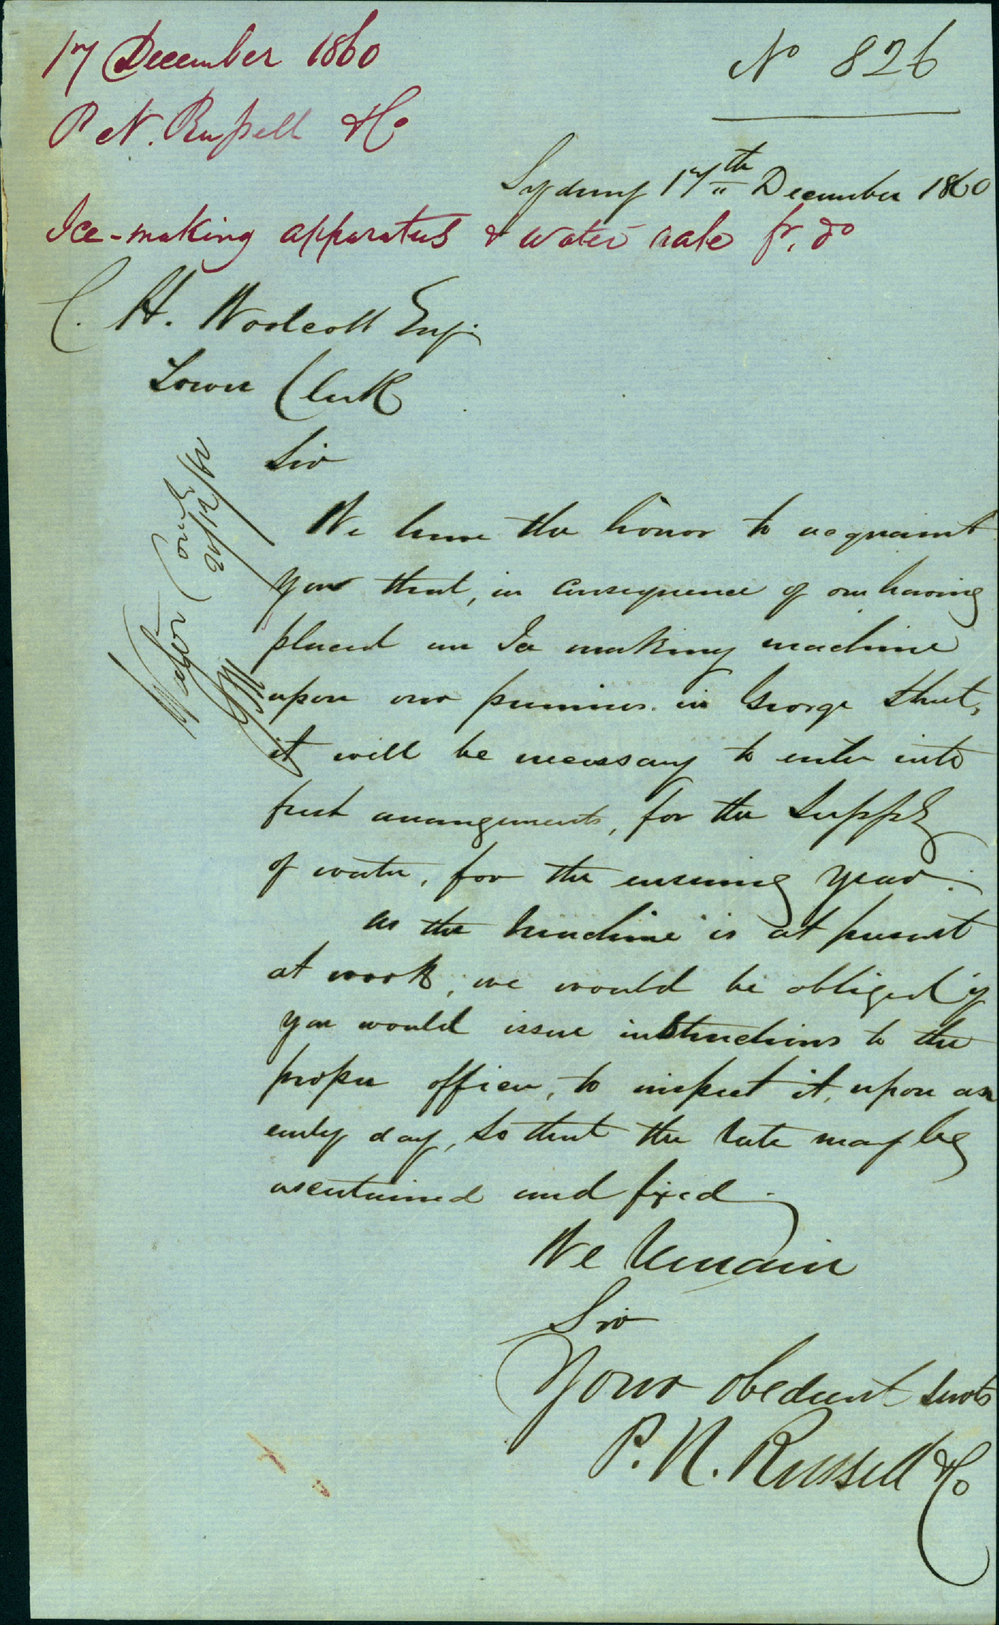 17 December 1860
No 826
P. N. Russell & Co
Sydney 17th December 1860
Ice-making apparatus & water rate fr. do
C. H. Woolcott Esq.
Town Clerk
Sir
Water Comee
20/12/60
We have the honor to acquaint
you that, in consequence of our having
placed an Ice making machine
upon our premises in George Street,
it will be necessary to enter into
fresh arrangements, for the supply
of water, for the ensuing year.
As the Machine is at present
at work, we would be obliged if
you would issue instructions to the
proper officer, to inspect it, upon an
early day, so that the rate may be
ascertained and fixed.
We Remain
Sir
Your obedient Servts
P. N. Russell & Co